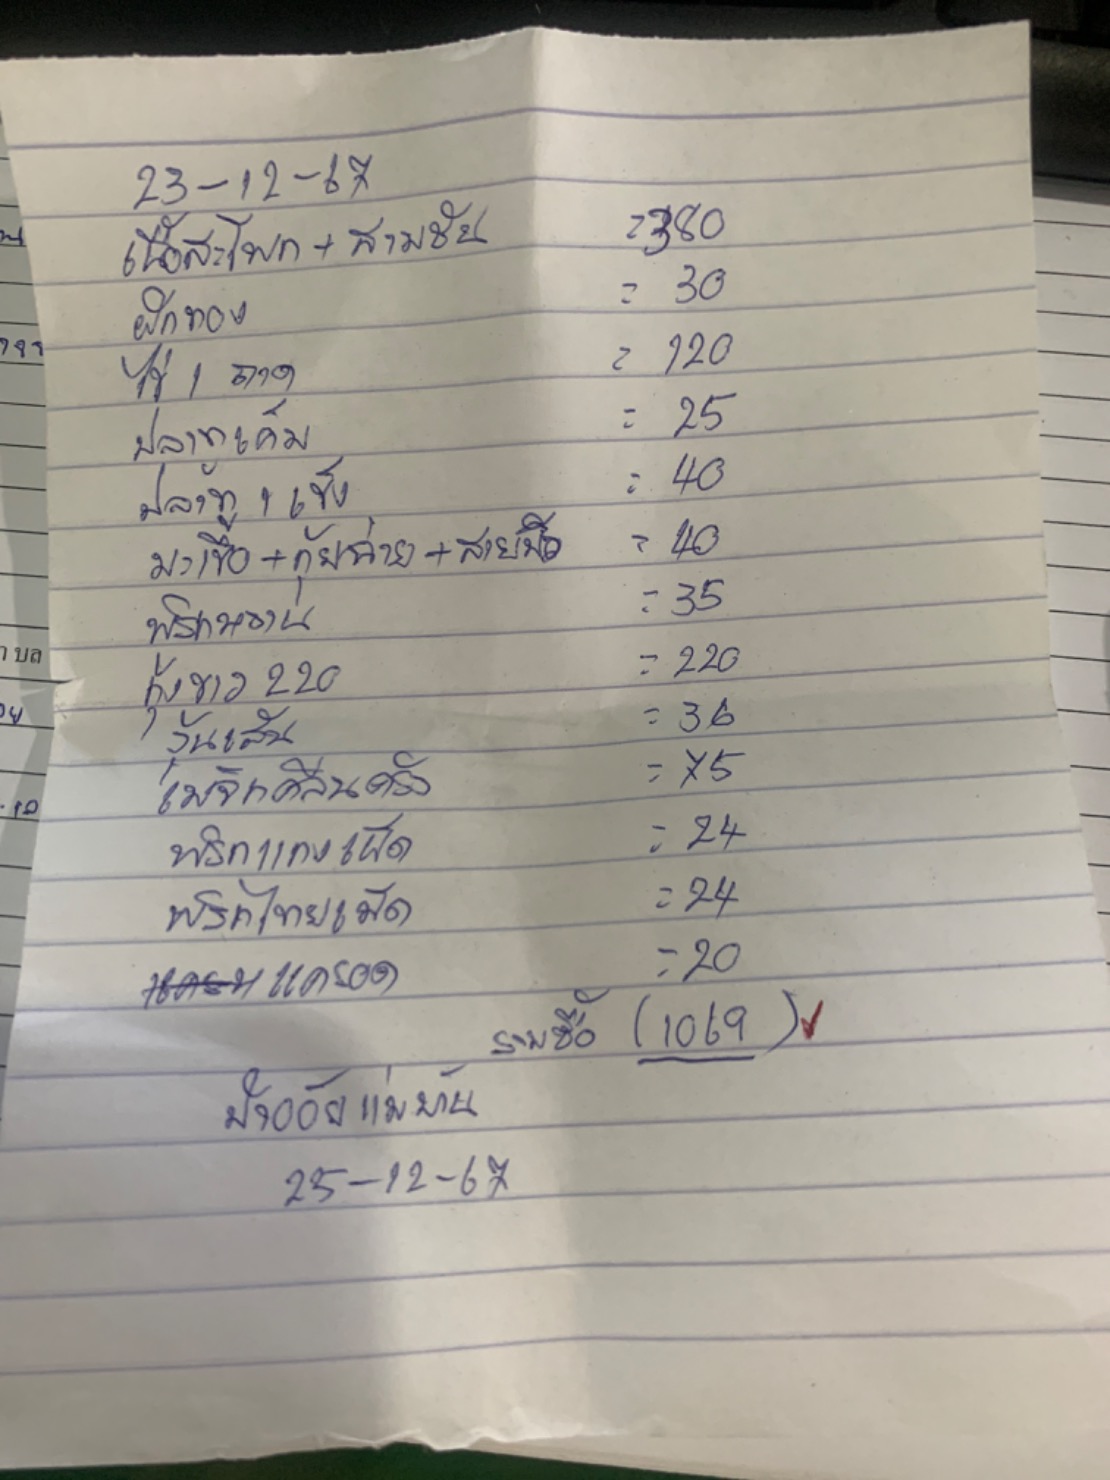 23-12-67
เนื้อสะโพก + สามชั้น = 380
ฝักทอง = 30
ไข่ 1 ถาด = 120
ปลาทูเค็ม = 25
ปลาทู 1 เข่ง = 40
มะเขือ + กุ้ยฉ่าย + สายบัว = 40
พริกหวาน = 35
กุ้งขาว 220 = 220
วุ้นเส้น = 36
เมจิกคลีนครัว = 75
พริกแกงเผ็ด = 24
พริกไทยเม็ด = 24
แครอด = 20
รวมซื้อ (1069)
ป้าออัยแม่บ้าน
25-12-67
ตำบล